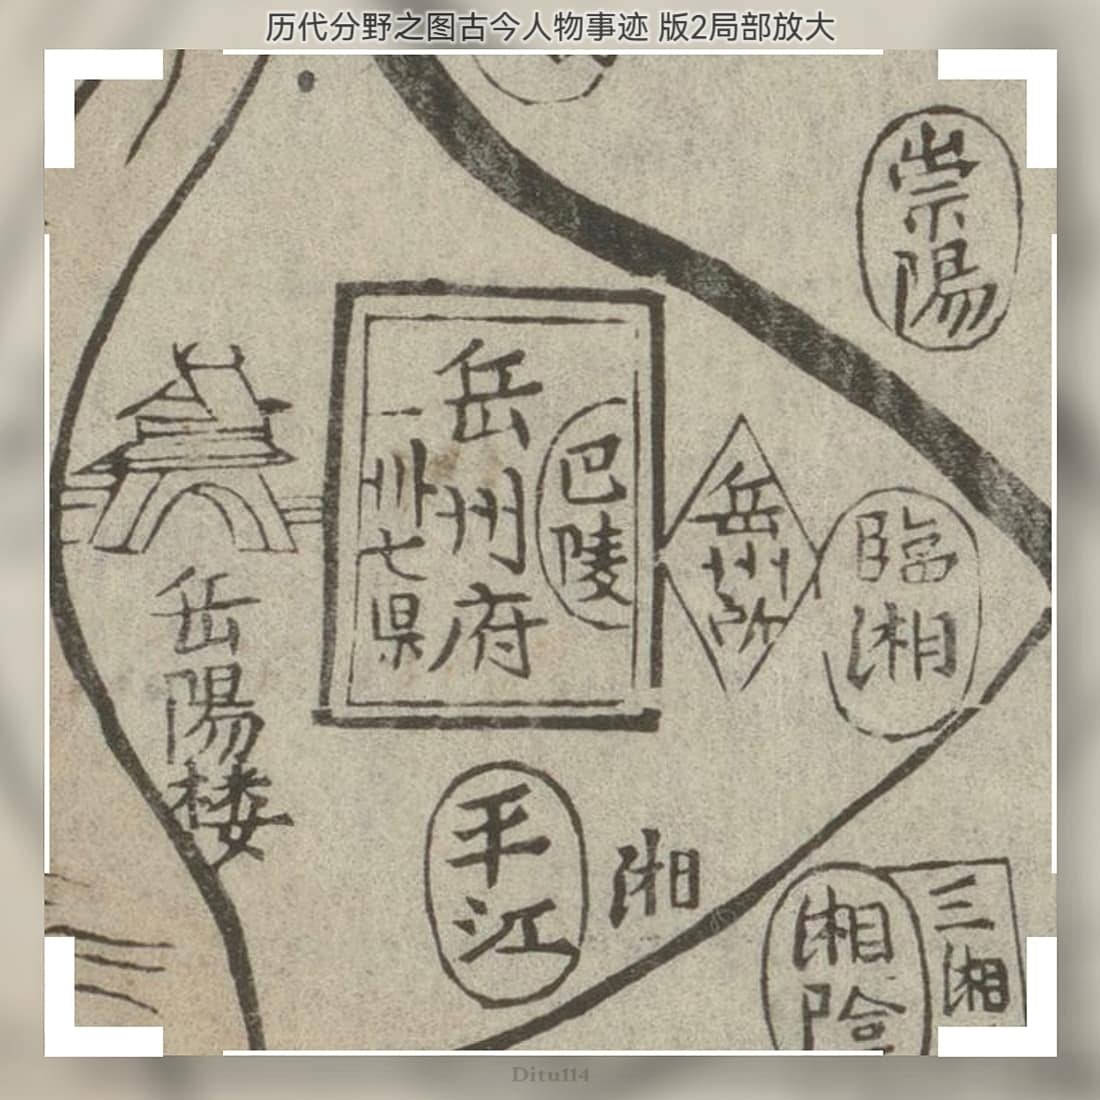 历代分野之图古今人物事迹 版2局部放大
崇陽
岳州府
巴陵
一州七県
岳州所
臨湘
岳陽楼
平江
湘
湘陰
三湘
Ditu114